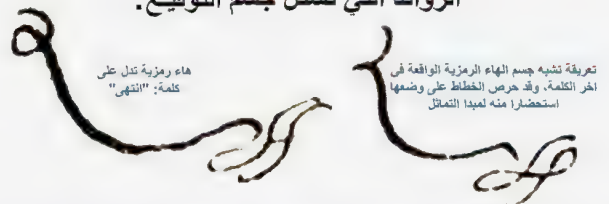 الزوائد التي تشكل جسم التوقيع:
هاء رمزية تدل على
كلمة: "انتهى"
تعريقة تشبه جسم الهاء الرمزية الواقعة فى
اخر الكلمة، وقد حرص الخطاط على وضعها
استحضارا منه لمبدا التماثل